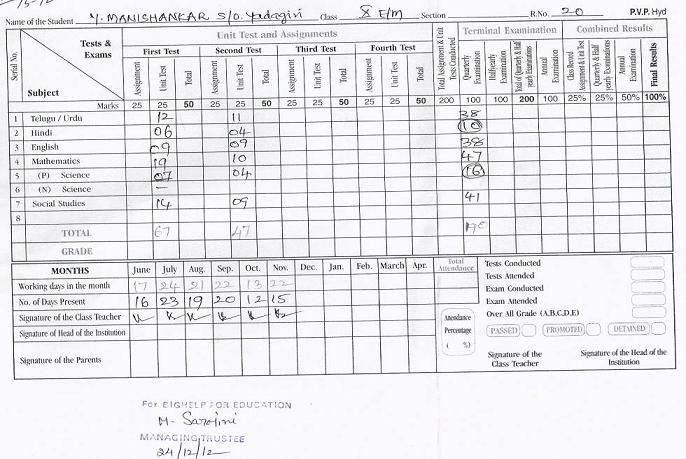 15-12
Name of the Student Y. MANISHANKAR S/O. Yadagiri Class X E/M Section R.No. 20 P.V.P. Hyd
Serial No. Tests & Exams Subject Unit Test and Assignments Terminal Examination Combined Results
First Test Second Test Third Test Fourth Test
Assignment Unit Test Total Assignment Unit Test Total Assignment Unit Test Total Assignment Unit Test Total Total Assignment & Unit Tests Conducted Quarterly Examination Halfyearly Examination Total of Quarterly & Half yearly Examinations Annual Examination Class Record Assignment & Unit Test Quarterly & Half yearly Examinations Annual Examination Final Results
Marks 25 25 50 25 25 50 25 25 50 25 25 50 200 100 100 200 100 25% 25% 50% 100%
1 Telugu / Urdu 12 11 38
2 Hindi 06 04 10
3 English 09 09 38
4 Mathematics 19 10 47
5 (P) Science 07 04 16
6 (N) Science —
7 Social Studies 14 09 41
8
TOTAL 67 47
GRADE
MONTHS June July Aug. Sep. Oct. Nov. Dec. Jan. Feb. March Apr. Total Attendance
Working days in the month 17 24 21 22 13 22
No. of Days Present 16 23 19 20 12 15
Signature of the Class Teacher
Signature of Head of the Institution
Signature of the Parents
Attendance Percentage ( %)
Tests Conducted
Tests Attended
Exam Conducted
Exam Attended
Over All Grade (A,B,C,D,E)
PASSED PROMOTED DETAINED
Signature of the Class Teacher Signature of the Head of the Institution
For BIGHELP FOR EDUCATION
M. Sarojini
MANAGING TRUSTEE
24/12/12